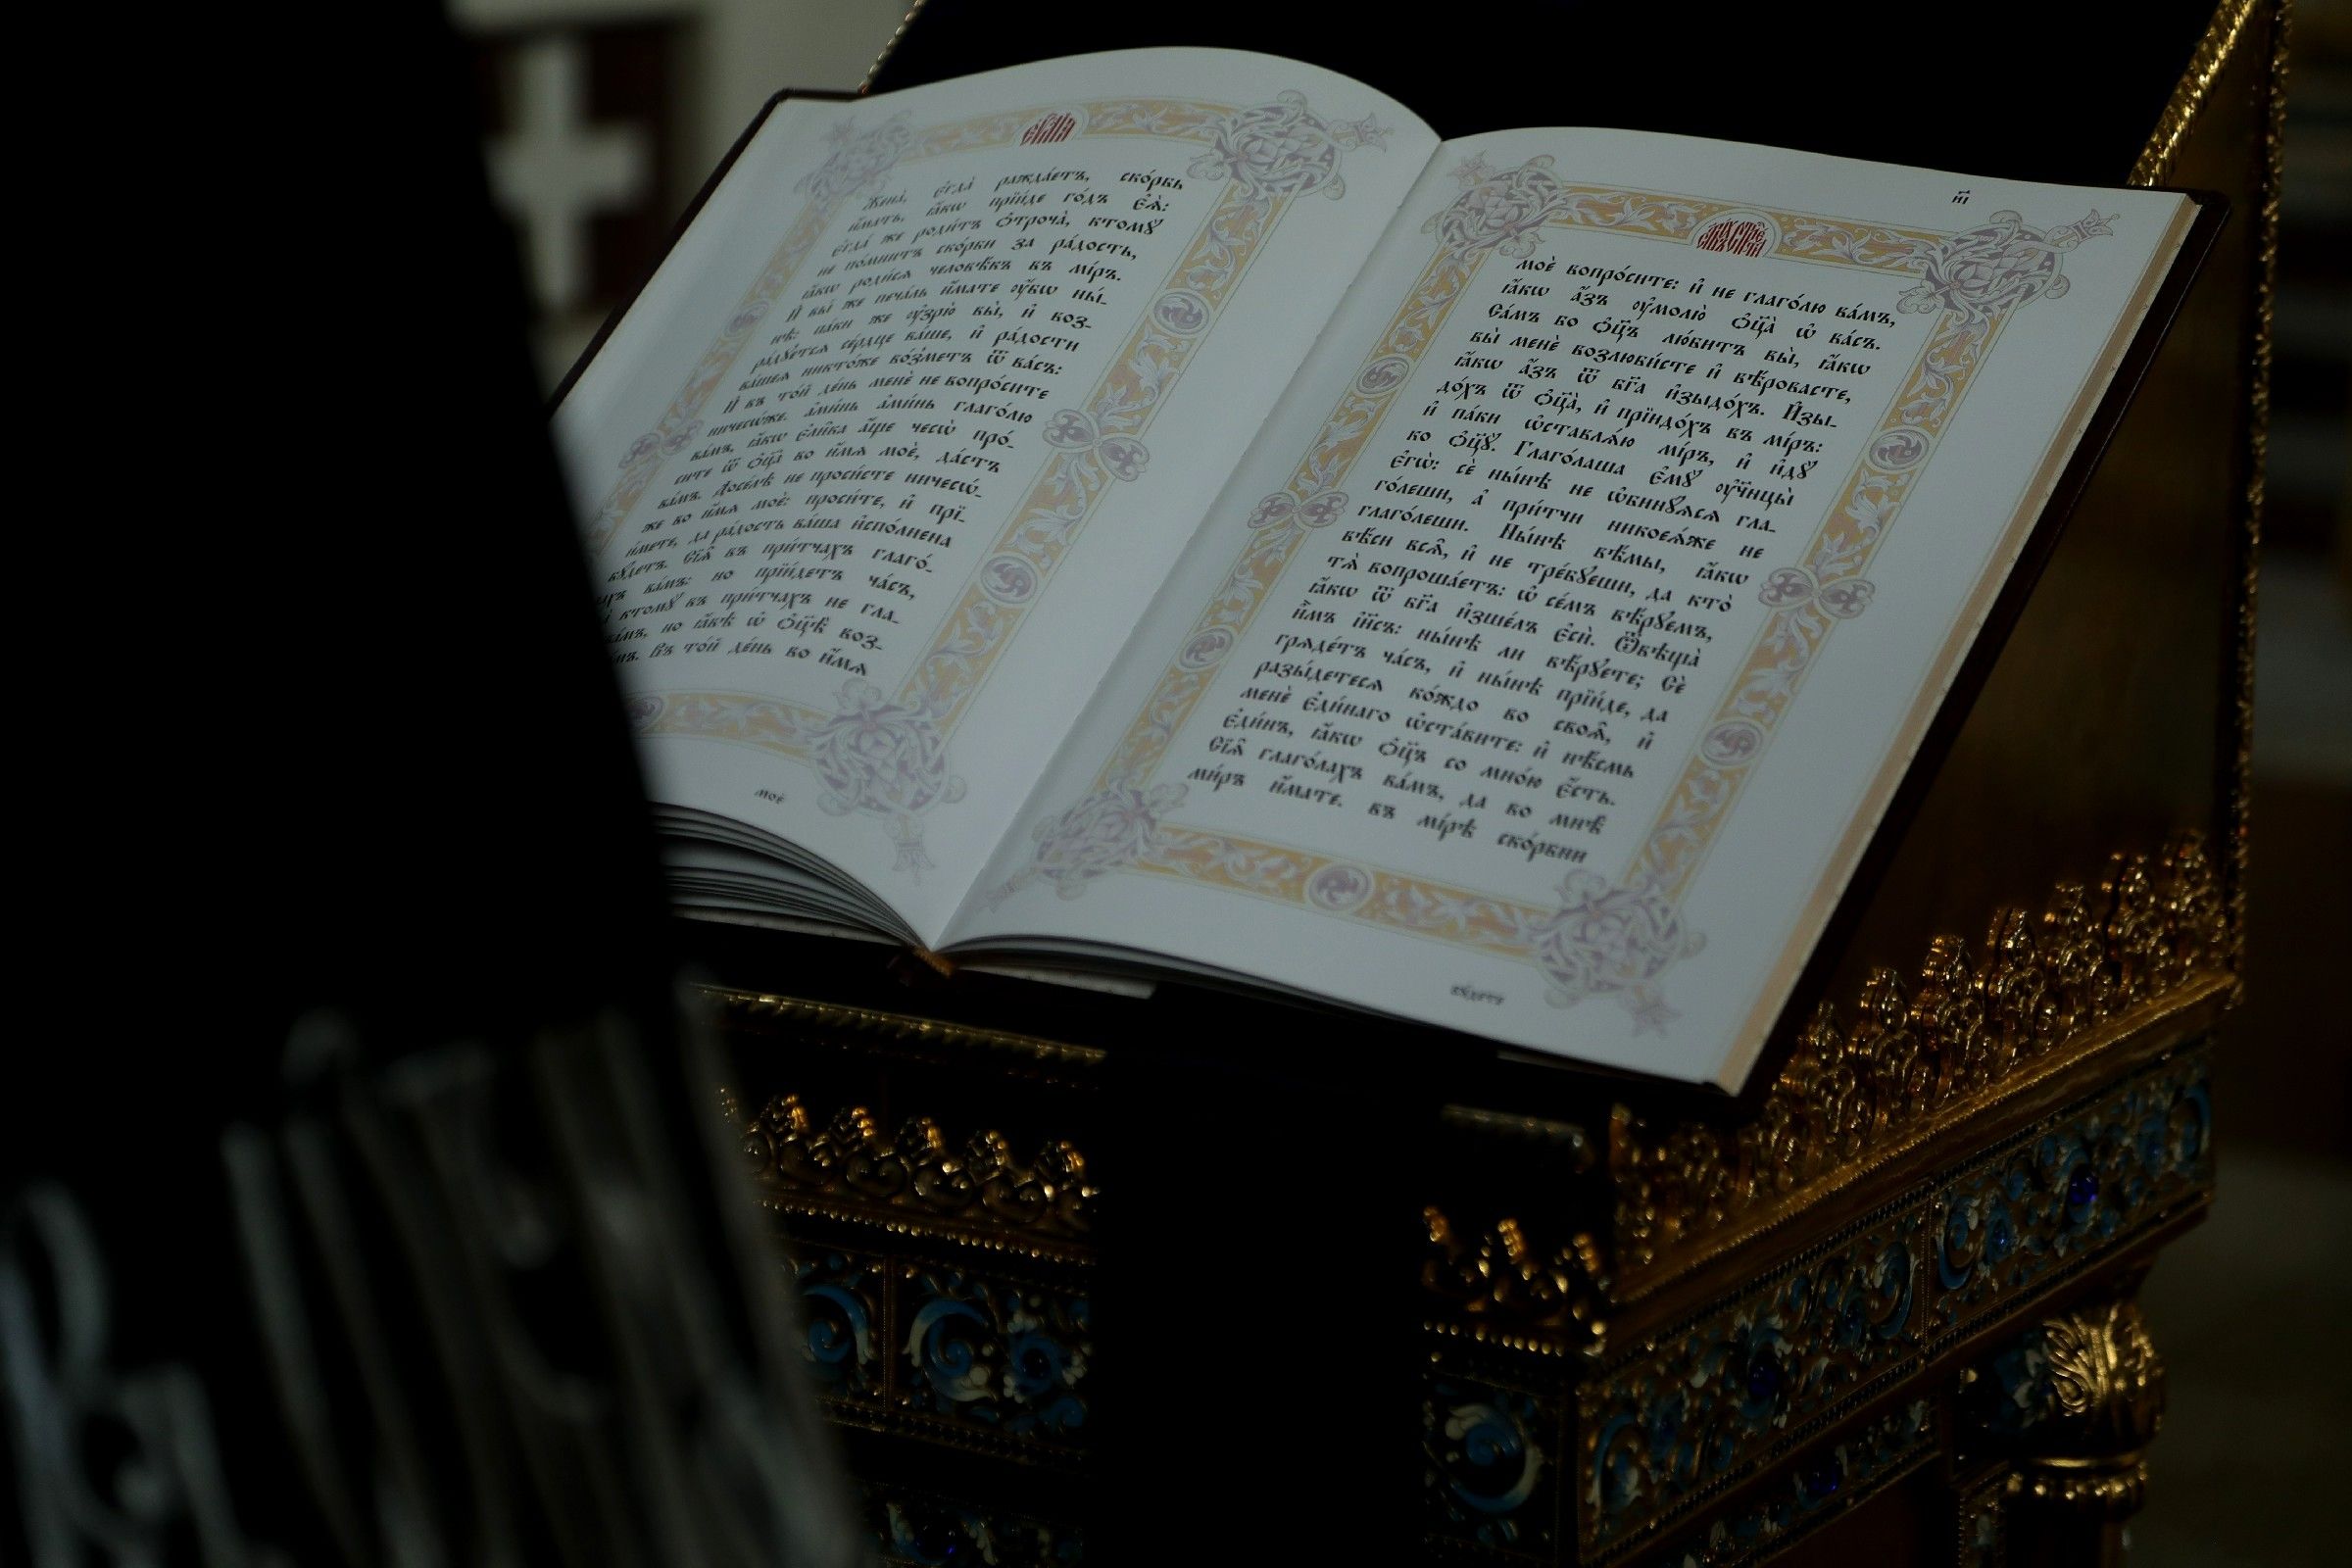 є҆ѵⷢ҇лїа
Жена̀, є҆гда̀ ражда́етъ, ско́рбь
и҆́мать, ꙗ҆́кѡ прїи́де го́дъ є҆ѧ̀:
є҆гда́ же роди́тъ ѻ҆троча̀, ктомꙋ̀
не по́мнитъ ско́рби за ра́дость,
ꙗ҆́кѡ роди́сѧ человѣ́къ въ мі́ръ.
И҆ вы́ же печа́ль и҆́мате ᲂу҆̀бѡ ны́-
нѣ: па́ки же ᲂу҆зрю̀ вы̀, и҆ воз-
ра́дꙋетсѧ се́рдце ва́ше, и҆ ра́дости
ва́шеѧ никто́же во́зметъ ѿ ва́съ:
И҆ въ то́й де́нь менѐ не вопро́сите
ничесѡ́же. а҆ми́нь а҆ми́нь глаго́лю
ва́мъ, ꙗ҆́кѡ є҆ли̑ка а҆́ще чесѡ̀ про́-
сите ѿ ѻ҆ц҃а̀ во и҆́мѧ моѐ, да́стъ
ва́мъ. Досе́лѣ не проси́сте ничесѡ́-
же во и҆́мѧ моѐ: проси́те, и҆ прїи-
и́мете, да ра́дость ва́ша и҆спо́лнена
бꙋ́детъ. Сїѧ̑ въ при́тчахъ глаго́-
ахъ ва́мъ: но прїи́детъ ча́съ,
ктомꙋ̀ въ при́тчахъ не гла-
ва́мъ, но ꙗ҆́вѣ ѡ҆ ѻ҆ц҃ѣ̀ воз-
Въ то́й де́нь во и҆́мѧ
моѐ
и҃і
моѐ вопро́сите: и҆ не глаго́лю ва́мъ,
ꙗ҆́кѡ а҆́зъ ᲂу҆молю̀ ѻ҆ц҃а̀ ѡ҆ ва́съ.
Са́мъ бо ѻ҆ц҃ъ лю́битъ вы̀, ꙗ҆́кѡ
вы̀ менѐ возлюби́сте и҆ вѣ́ровасте,
ꙗ҆́кѡ а҆́зъ ѿ бг҃а и҆зыдо́хъ. И҆зы-
до́хъ ѿ ѻ҆ц҃а̀, и҆ прїидо́хъ въ мі́ръ:
и҆ па́ки ѡ҆ставлѧ́ю мі́ръ, и҆ и҆дꙋ̀
ко ѻ҆ц҃ꙋ̀. Глаго́лаша є҆мꙋ̀ ᲂу҆чн҃цы̀
є҆гѡ̀: сѐ ны́нѣ не ѡ҆бинꙋ́ѧсѧ гла-
го́леши, а҆ при́тчи никоеѧ́же не
глаго́леши. Ны́нѣ вѣ́мы, ꙗ҆́кѡ
вѣ́си всѧ̑, и҆ не тре́бꙋеши, да кто̀
тѧ̀ вопроша́етъ: ѡ҆ се́мъ вѣ́рꙋемъ,
ꙗ҆́кѡ ѿ бг҃а и҆зше́лъ є҆сѝ. Ѿвѣща̀
и҆̀мъ і҆и҃съ: ны́нѣ ли вѣ́рꙋете; Сѐ
грѧде́тъ ча́съ, и҆ ны́нѣ прїи́де, да
разы́детесѧ ко́ждо во своѧ̑, и҆
менѐ є҆ди́наго ѡ҆ста́вите: и҆ нѣ́смь
є҆ди́нъ, ꙗ҆́кѡ ѻ҆ц҃ъ со мно́ю є҆́сть.
Сїѧ̑ глаго́лахъ ва́мъ, да во мнѣ̀
ми́ръ и҆́мате. въ мі́рѣ ско́рбни
бꙋ́дете